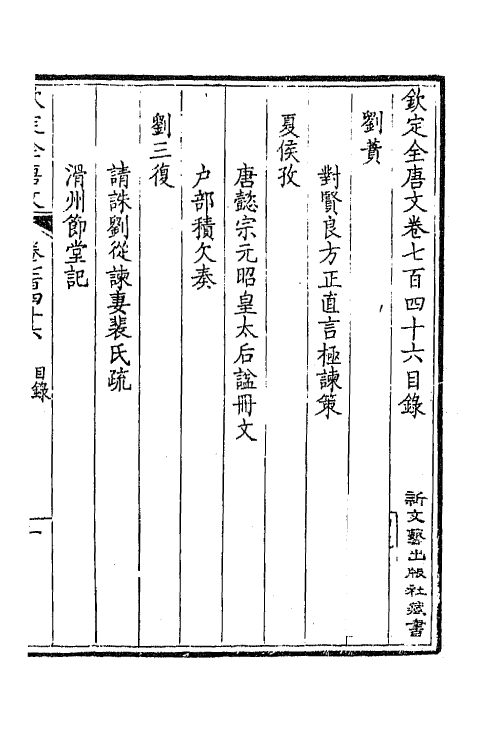 欽定全唐文卷七百四十六目錄
新文藝出版社藏書
劉蕡
對賢良方正直言極諫策
夏侯孜
唐懿宗元昭皇太后諡冊文
户部積欠奏
劉三復
請誅劉從諫妻裴氏疏
滑州節堂記
欽定全唐文
卷七百四十六
目錄
一